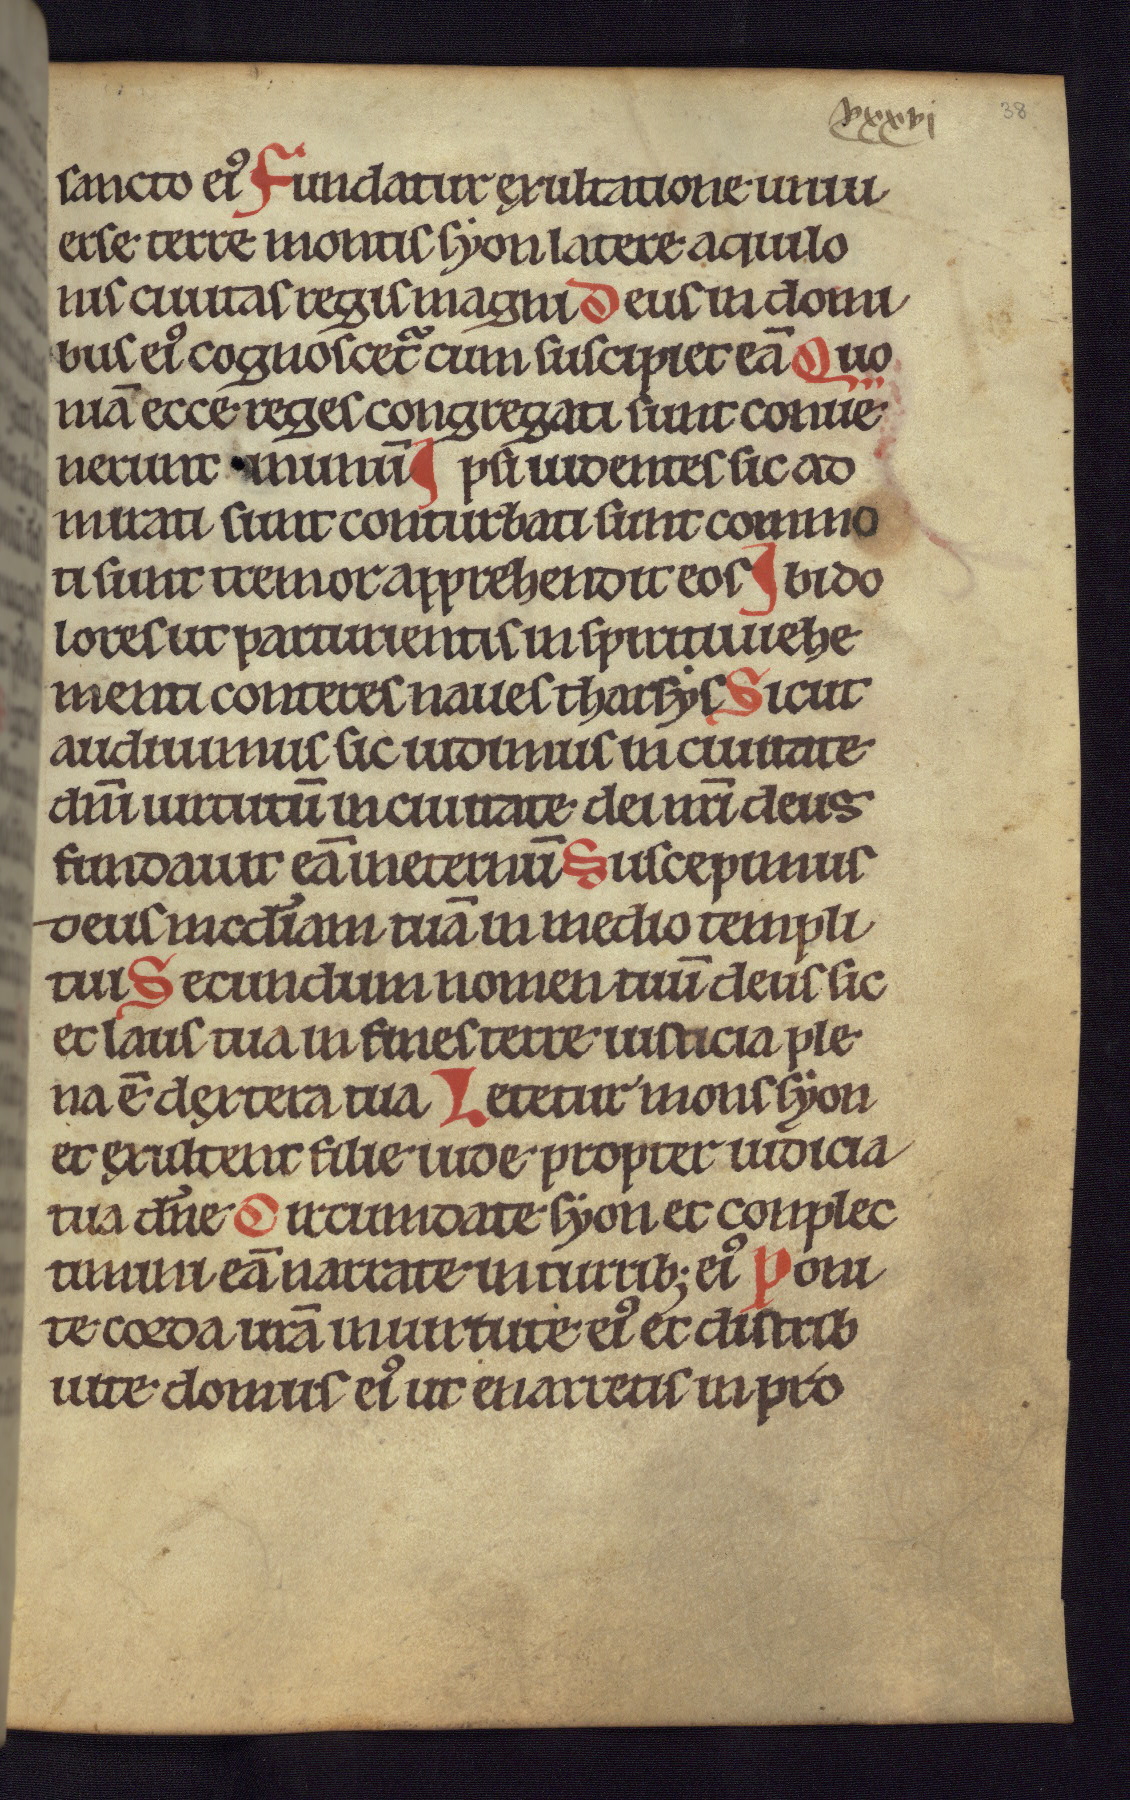 xxxvi 38
sancto ei᷒ Fundatur ęxultatione uniu
erse terre montis syon latere aquilo
nis ciuitas regis magni Deus in domi
bus ei᷒ cognoscet᷑ cum suscipiet eā Quo
niā ecce reges congregati sunt conue
nerunt in unū Ipsi uidentes sic ad
mirati sunt conturbati sunt commo
ti sunt tremor apprehendit eos Ibi do
lores ut parturientis in spiritu uehe
menti conteres naues tharsys Sicut
audiuimus sic uidimus in ciuitate
dn̄i uirtutū in ciuitate dei nr̄i deus
fundauit eā in eternū Suscepimus
deus mc̄diam tuā in medio templi
tui Secundum nomen tuū deus sic
et laus tua in fines terre iusticia ple
na ē dęxtera tua Letetur mons syon
et ęxultent filie iude propter iudicia
tua dn̄e Circumdate syon et conplec
timini eā narrate in turrib; ei᷒ Poni
te corda urā in uirtute ei᷒ et distrib
uite domus ei᷒ ut enarretis in pro